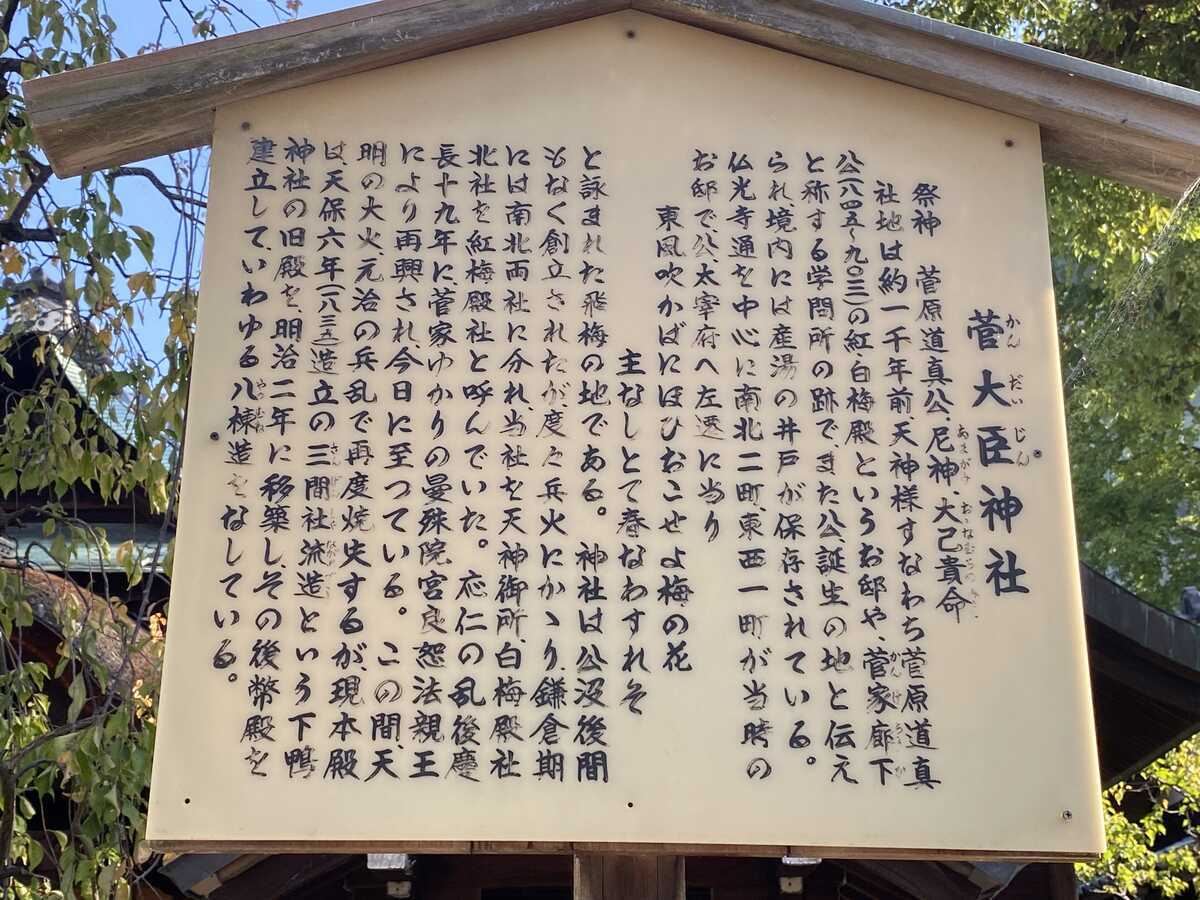 菅大臣神社
かんだいじん
祭神 菅原道真公、尼神、大己貴命
あまがみ おおなむちのみこと
社地は約一千年前、天神様すなわち菅原道真
公(八四五〜九〇三)の紅・白梅殿というお邸や、菅家廊下
かんけろうか
と称する学問所の跡で、また公、誕生の地と伝え
られ、境内には産湯の井戸が保存されている。
仏光寺通を中心に南北二町、東西一町が当時の
お邸で、公、太宰府へ左遷に当り
東風吹かばにほひおこせよ梅の花
主なしとて春なわすれそ
と詠まれた飛梅の地である。 神社は公没後間
もなく創立されたが度々兵火にかゝり、鎌倉期
には南北両社に分れ、当社を天神御所、白梅殿社
北社を紅梅殿社と呼んでいた。 応仁の乱後慶
長十九年に、菅家ゆかりの曼殊院宮良恕法親王
により再興され、今日に至つている。 この間、天
明の大火、元治の兵乱で再度焼失するが、現本殿
は、天保六年(一八三五)造立の三間社流造という下鴨
さんげんしゃながれづくり
神社の旧殿を、明治二年に移築し、その後幣殿を
建立して、いわゆる八棟造をなしている。
やつむね